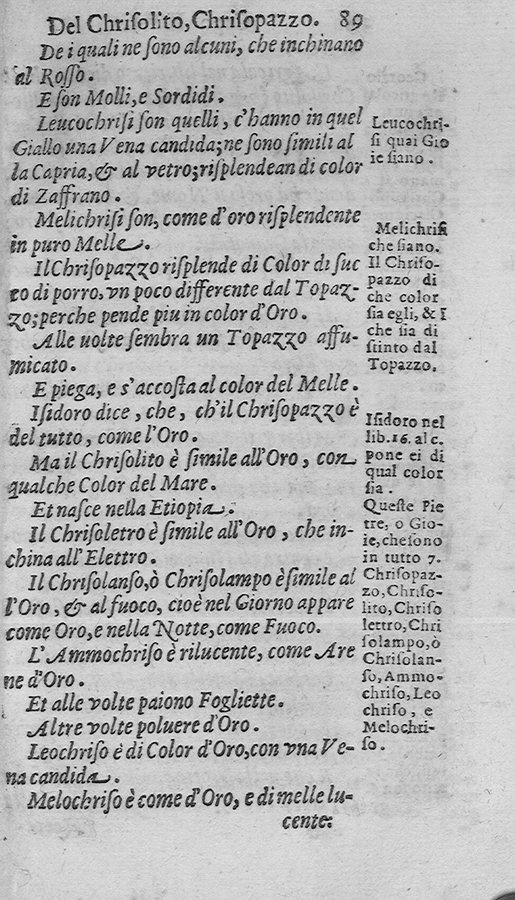 Del Chrisolito, Chrisopazzo. 89
De i quali ne sono alcuni, che inchinano
al Rosso.
E son Molli, e Sordidi.
Leucochrisi son quelli, c'hanno in quel
Giallo una Vena candida; ne sono simili al
la Capria, & al vetro; risplendean di color
di Zaffrano.
Melichrisi son, come d'oro risplendente
in puro Melle.
Il Chrisopazzo risplende di Color di suc
co di porro, vn poco differente dal Topaz-
zo; perche pende piu in color d'Oro.
Alle uolte sembra un Topazzo affu-
micato.
E piega, e s'accosta al color del Melle.
Isidoro dice, che, ch'il Chrisopazzo è
del tutto, come l'Oro.
Ma il Chrisolito è simile all'Oro, con
qualche Color del Mare.
Et nasce nella Etiopia.
Il Chrisoletro è simile all'Oro, che in-
china all'Elettro.
Il Chrisolanso, ò Chrisolampo è simile al
l'Oro, & al fuoco, cioè nel Giorno appare
come Oro, e nella Notte, come Fuoco.
L'Ammochriso è rilucente, come Are
ne d'Oro.
Et alle volte paiono Fogliette.
Altre volte poluere d'Oro.
Leochriso è di Color d'Oro, con vna Ve-
na candida.
Melochriso è come d'Oro, e di melle lu-
cente:
Leucochri-
si quai Gio
ie siano.
Melichrisi
che siano.
Il Chriso-
pazzo di
che color
sia egli, & I
che sia di
stinto dal
Topazzo.
Isidoro nel
lib. 16. al c.
pone ei di
qual color
sia.
Queste Pie
tre, o Gio-
ie, che sono
in tutto 7.
Chrisopaz-
zo, Chriso-
lito, Chriso
lettro, Chri
solampo, ò
Chrisolan-
so, Ammo-
chriso, Leo
chriso, e
Melochri-
so.